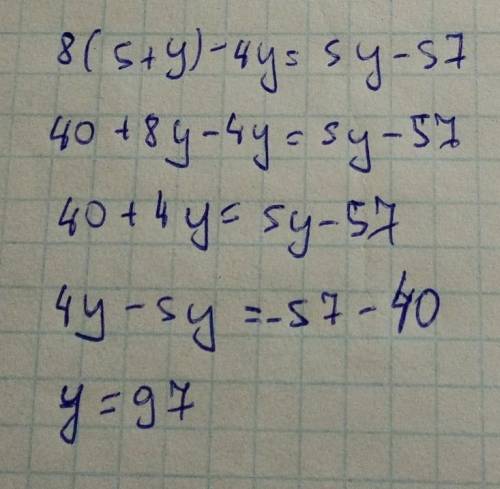 8(5+y)-4y=5y-57
40+8y-4y=5y-57
40+4y=5y-57
4y-5y=-57-40
y=97